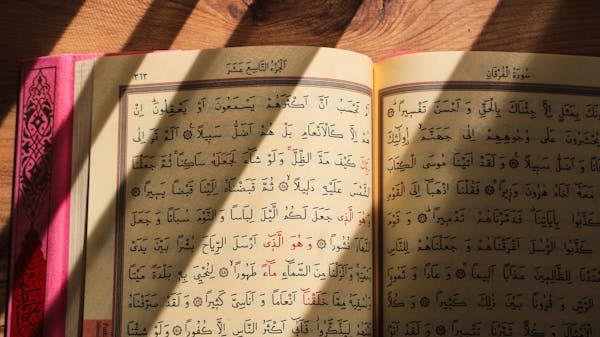 سُورَةُ الْفُرْقَانِ
بِمَثَلٍ اِلَّا جِئْنَاكَ بِالْحَقِّ وَاَحْسَنَ تَفْسِيرًا
يُحْشَرُونَ عَلٰى وُجُوهِهِمْ اِلٰى جَهَنَّمَ اُولٰٓئِكَ
وَاَضَلُّ سَبِيلًا وَلَقَدْ اٰتَيْنَا مُوسَى الْكِتَابَ
مَعَهُٓ اَخَاهُ هٰرُونَ وَزِيرًا فَقُلْنَا اذْهَبَٓا اِلَى الْقَوْمِ
كَذَّبُوا بِاٰيَاتِنَا فَدَمَّرْنَاهُمْ تَدْمِيرًا وَقَوْمَ
كَذَّبُوا الرُّسُلَ اَغْرَقْنَاهُمْ وَجَعَلْنَاهُمْ لِلنَّاسِ
لِلظَّالِمِينَ عَذَابًا اَلِيمًا وَعَادًا وَثَمُودَا
الرَّسِّ وَقُرُونًا بَيْنَ ذٰلِكَ كَثِيرًا وَكُلًّا
الْاَمْثَالَ وَكُلًّا تَبَّرْنَا تَتْبِيرًا وَلَقَدْ
الْجُزْءُ التَّاسِعَ عَشَرَ
٣٦٣
اَمْ تَحْسَبُ اَنَّ اَكْثَرَهُمْ يَسْمَعُونَ اَوْ يَعْقِلُونَ اِنْ
هُمْ اِلَّا كَالْاَنْعَامِ بَلْ هُمْ اَضَلُّ سَبِيلًا اَلَمْ تَرَ اِلٰى
رَبِّكَ كَيْفَ مَدَّ الظِّلَّ وَلَوْ شَٓاءَ لَجَعَلَهُ سَاكِنًا ثُمَّ جَعَلْنَا
الشَّمْسَ عَلَيْهِ دَلِيلًا ثُمَّ قَبَضْنَاهُ اِلَيْنَا قَبْضًا يَسِيرًا
وَهُوَ الَّذِي جَعَلَ لَكُمُ الَّيْلَ لِبَاسًا وَالنَّوْمَ سُبَاتًا وَجَعَلَ
النَّهَارَ نُشُورًا وَهُوَ الَّذِٓي اَرْسَلَ الرِّيَاحَ بُشْرًا بَيْنَ يَدَيْ
رَحْمَتِهِ وَاَنْزَلْنَا مِنَ السَّمَٓاءِ مَٓاءً طَهُورًا لِنُحْيِيَ بِهِ بَلْدَةً مَيْتًا
وَنُسْقِيَهُ مِمَّا خَلَقْنَٓا اَنْعَامًا وَاَنَاسِيَّ كَثِيرًا وَلَقَدْ صَرَّفْنَاهُ
بَيْنَهُمْ لِيَذَّكَّرُوا فَاَبٰٓى اَكْثَرُ النَّاسِ اِلَّا كُفُورًا وَلَوْ شِئْنَا